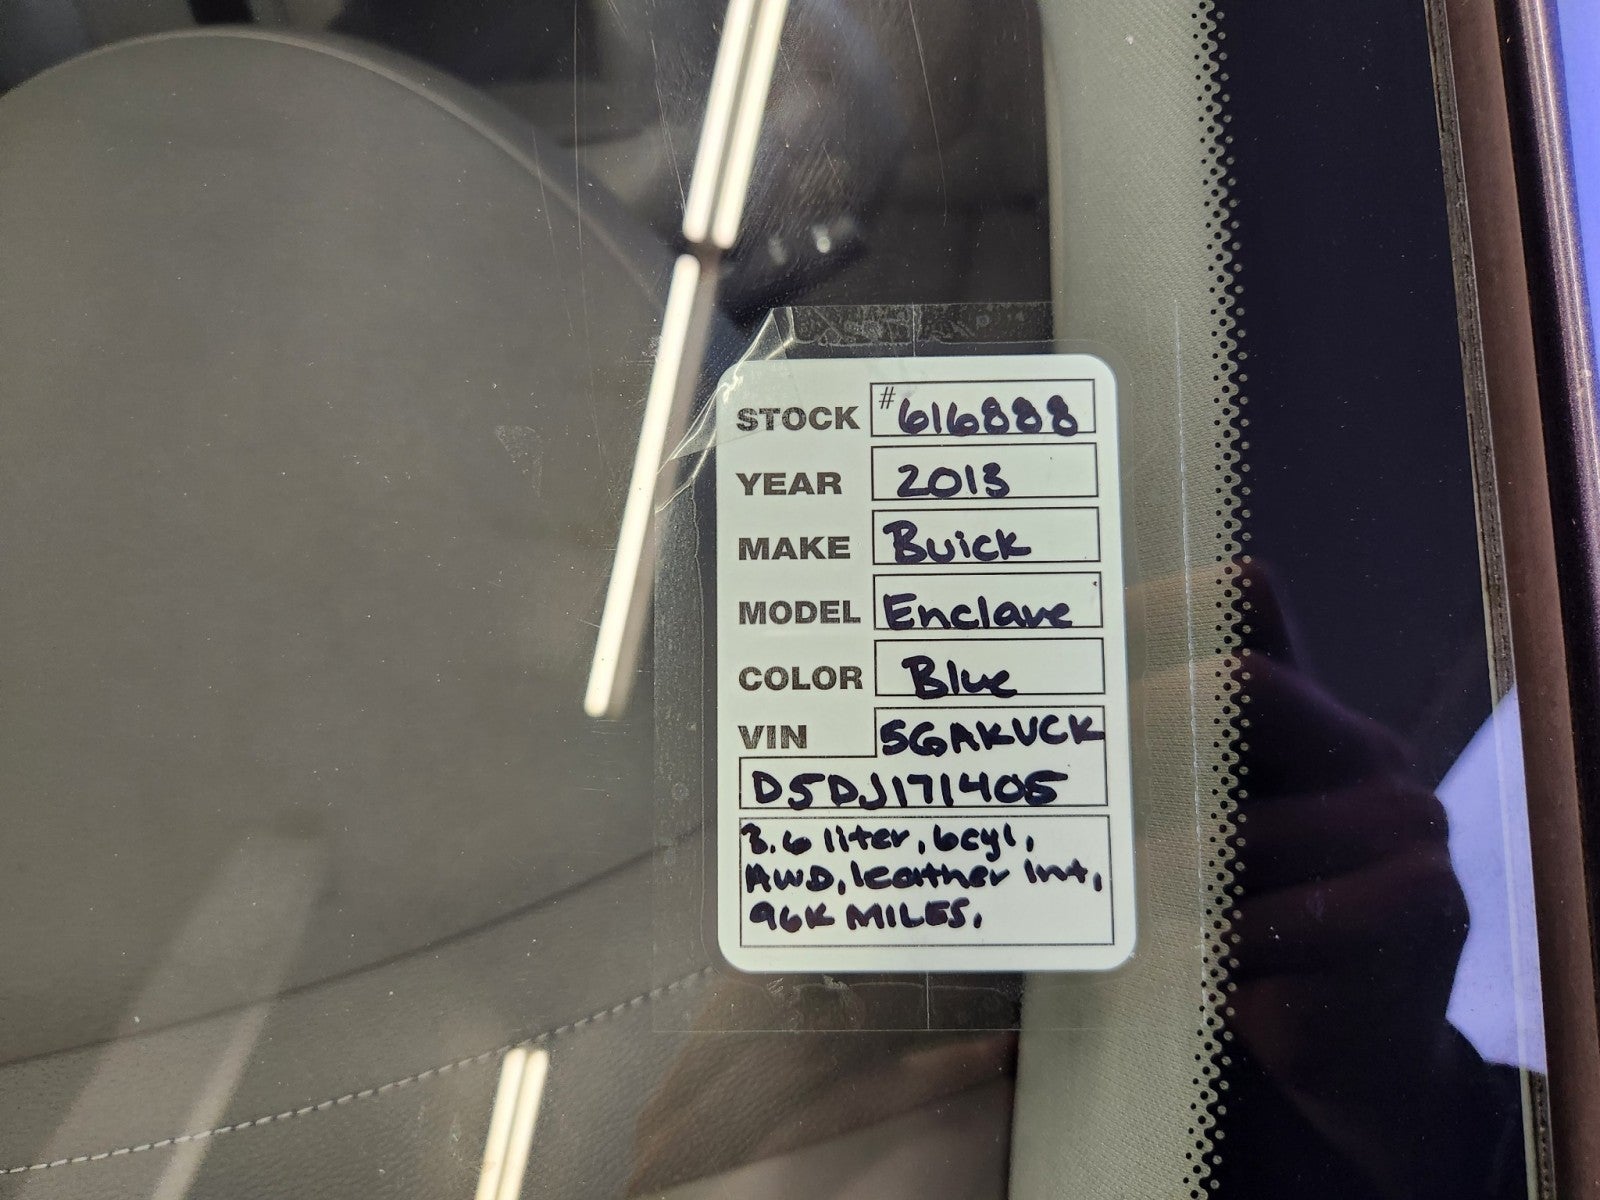 STOCK #616888
YEAR 2013
MAKE Buick
MODEL Enclave
COLOR Blue
VIN 5GAKVCK
D5DJ171405
3.6 liter, 6cyl,
AWD, leather int,
96K MILES.